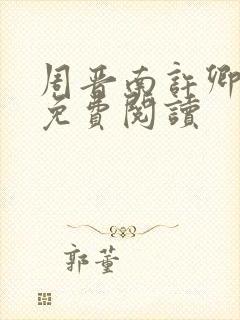 周晉南許卿
免費閱讀
郭董